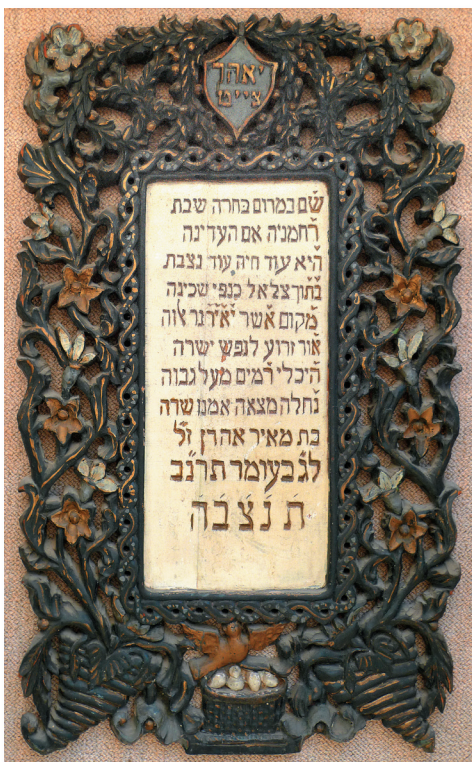 יאהר
צייט
שם במרום בחרה שבת
רחמניה אם העדינה
היא עוד חיה עוד נצבת
בתוך צל אל כנפי שכינה
מקום אשר יאיר נר אלוה
אור זרוע לנפש ישרה
היכלי רמים מעל גבוה
נחלה מצאה אמנו שרה
בת מאיר אהרן ז״ל
לג בעומר תרנ״ב
ת נ צ ב ה